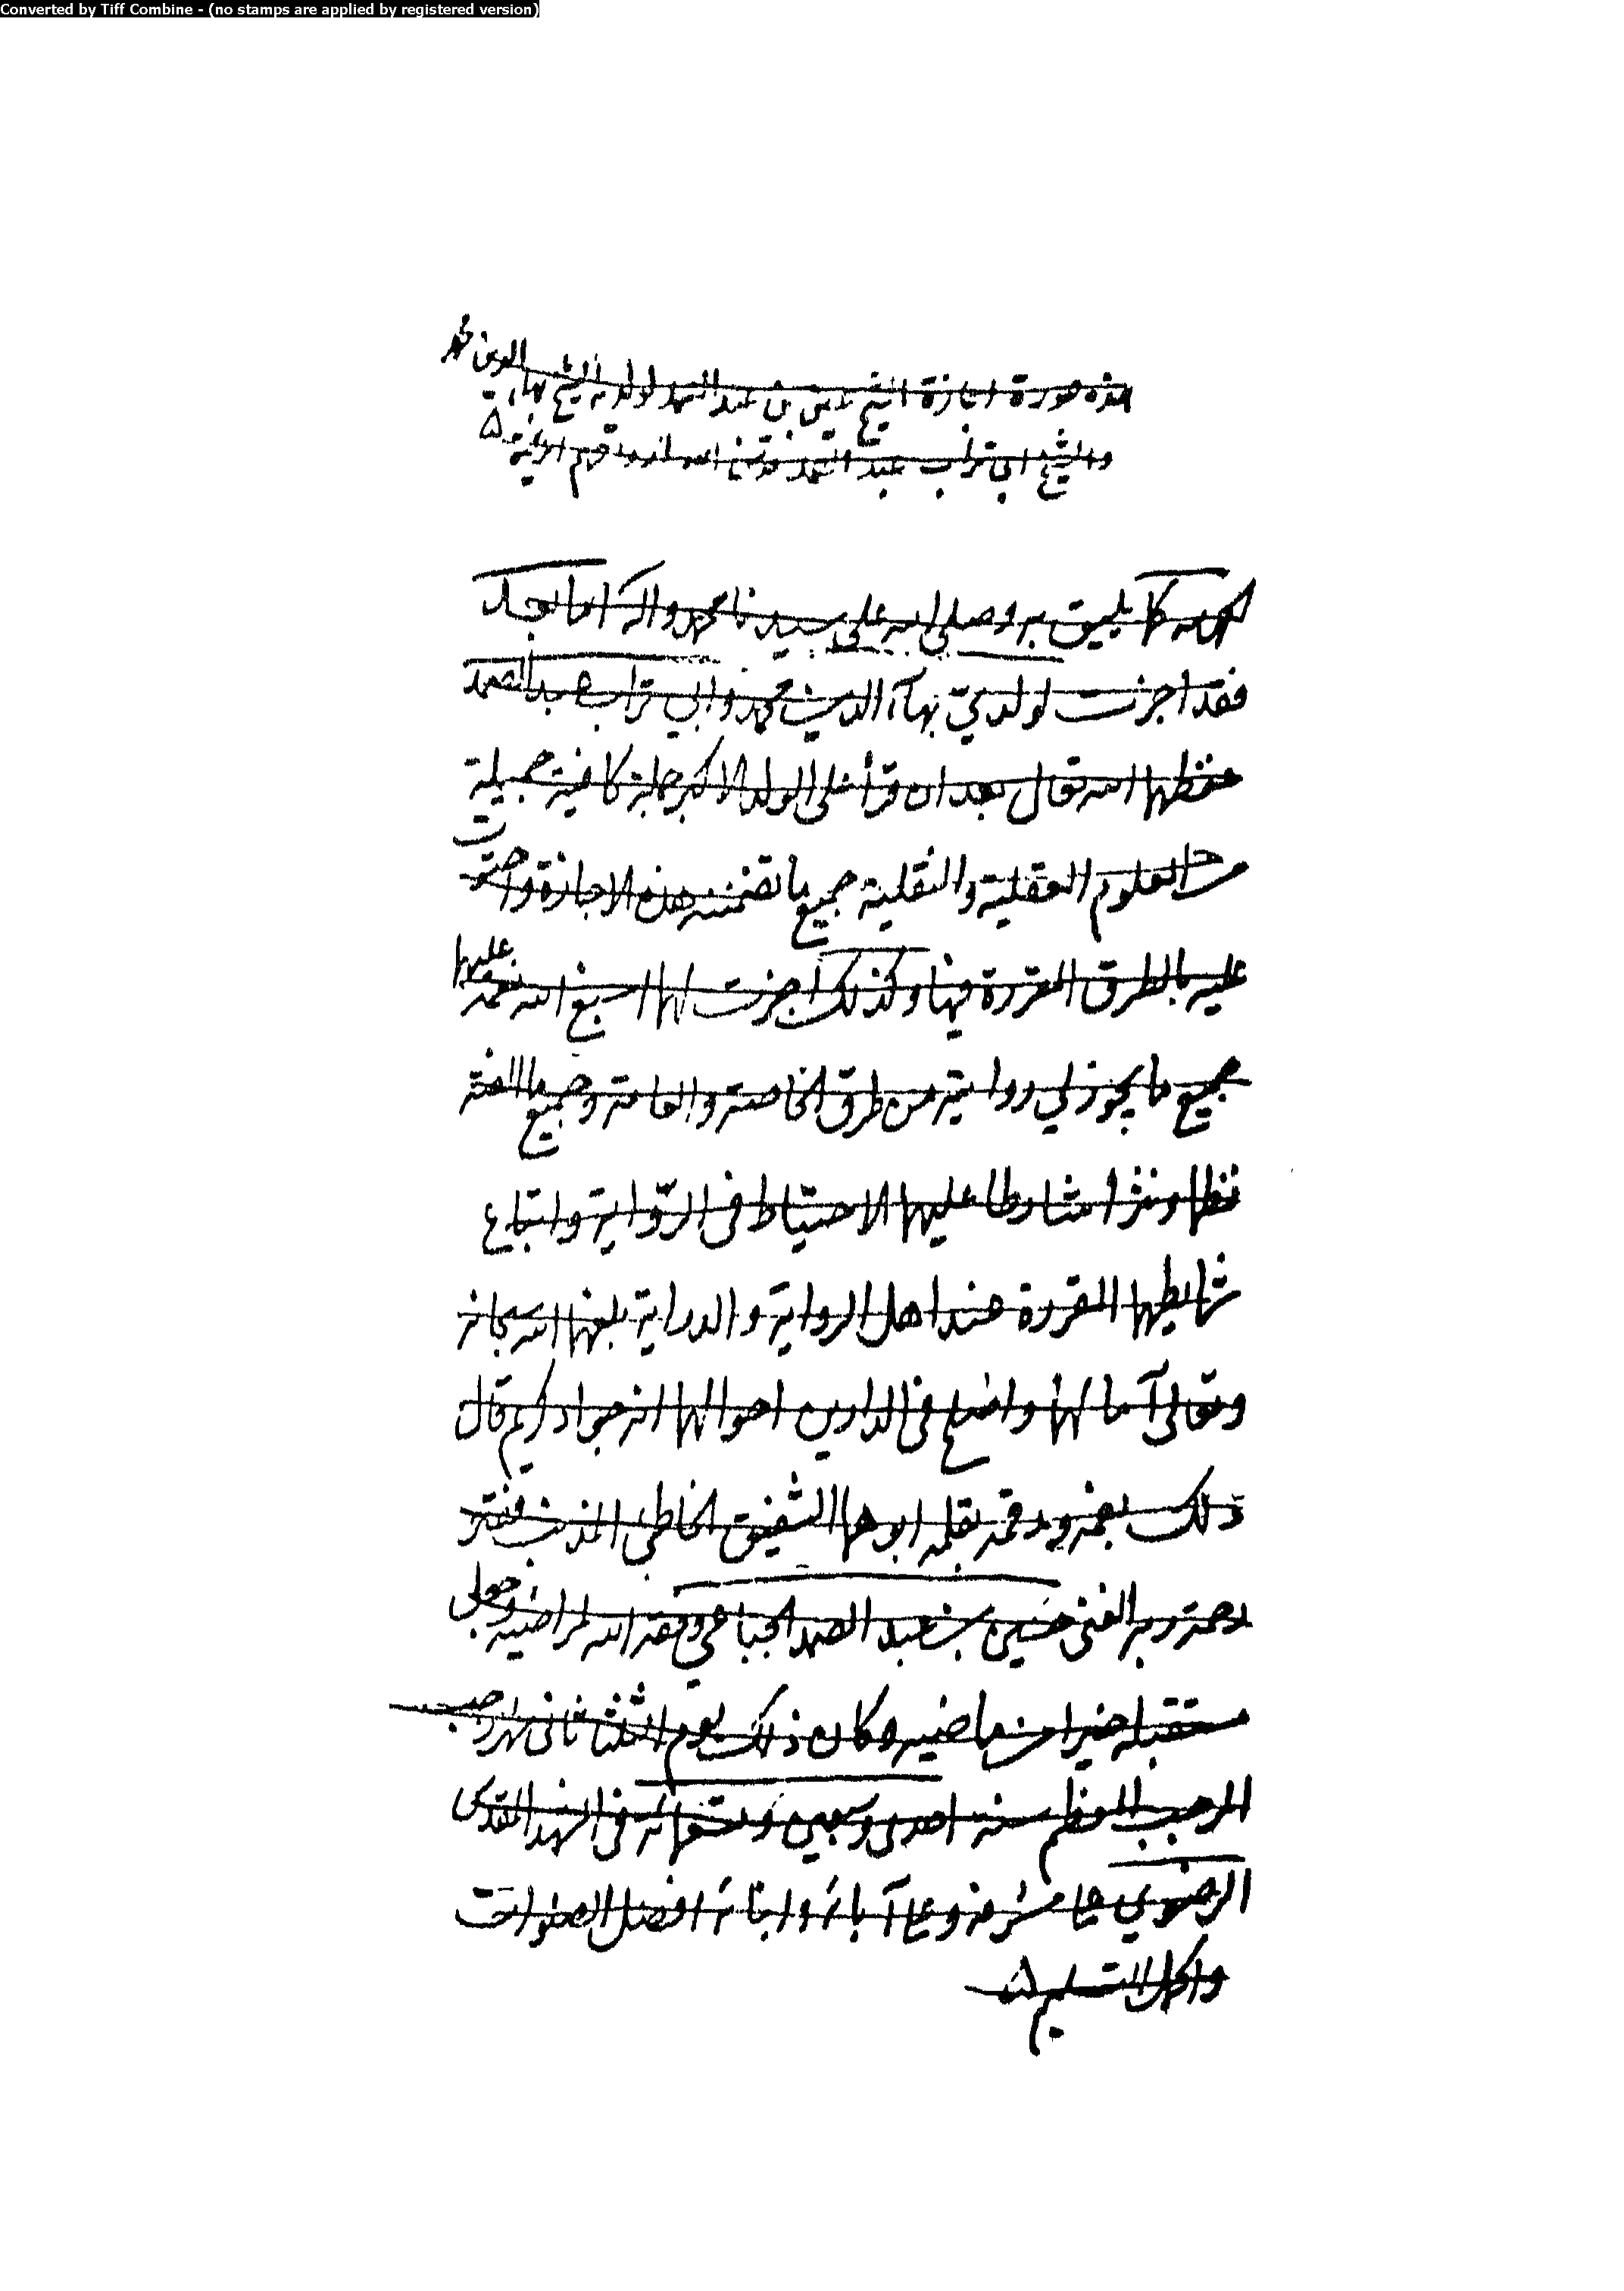 Converted by Tiff Combine - (no stamps are applied by registered version)
هذه صورة اجازة الشيخ حسين بن عبد الصمد لولديه الشيخ بهاء الدين محمد
والشيخ ابي تراب عبد الصمد قدس الله
الحمد لله كما يليق به وصلى الله على سيدنا محمد واله اما بعد
فقد اجزت لولديّ بهآء الدين محمد وابي تراب عبد الصمد
حفظهما الله تعالى بعد ان قرأ علي الولد الاكبر جملة كافية جميلة
من العلوم العقلية والنقلية جميع ما تضمنته هذه الاجازة واحتوت
عليه بالطرق المقررة فيها وكذلك اجزت لهما اسبغ الله نعمه عليهما
جميع ما يجوز لي روايته من طرق الخاصة والعامة وجميع ما الفته
نظما ونثرا شارطا عليهما الاحتياط في الرّواية واتباع
شرايطها المقررة عند اهل الرواية والدراية بلغهما الله سبحانه
وتعالى آمالهما واصلح في الدارين احوالهما انه جواد كريم قال
ذلك بفمه ورقمه بقلمه ابوهما الشفيق الخاطئ المذنب مفتقر
رحمة ربه الغني حسين بن عبد الصمد الجباعي وفقه الله لمراضيه وجعل
مستقبله خيرا من ماضيه وكان ذلك يوم الثلثا ثاني شهر رجب
المرجب المعظم سنه احدى وسبعين وتسعمائه في المشهد المقدس
الرضوي على مشرفه وعلى آبائه وابنائه افضل الصلوات
واكمل التسليم